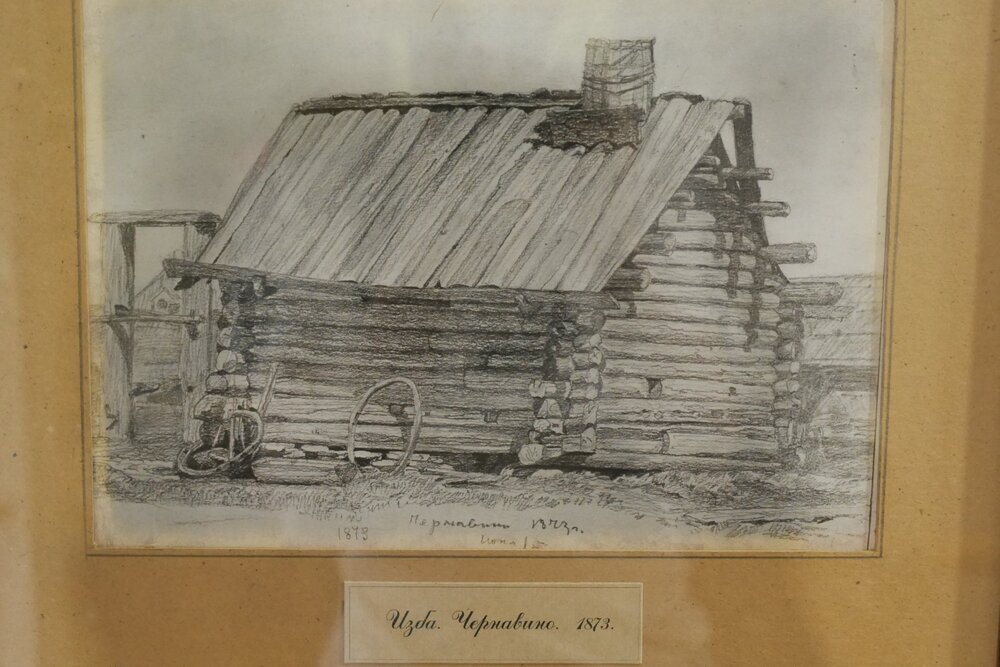 1873
Чернавино 1873г.
Июня 15
Изба. Чернавино. 1873.